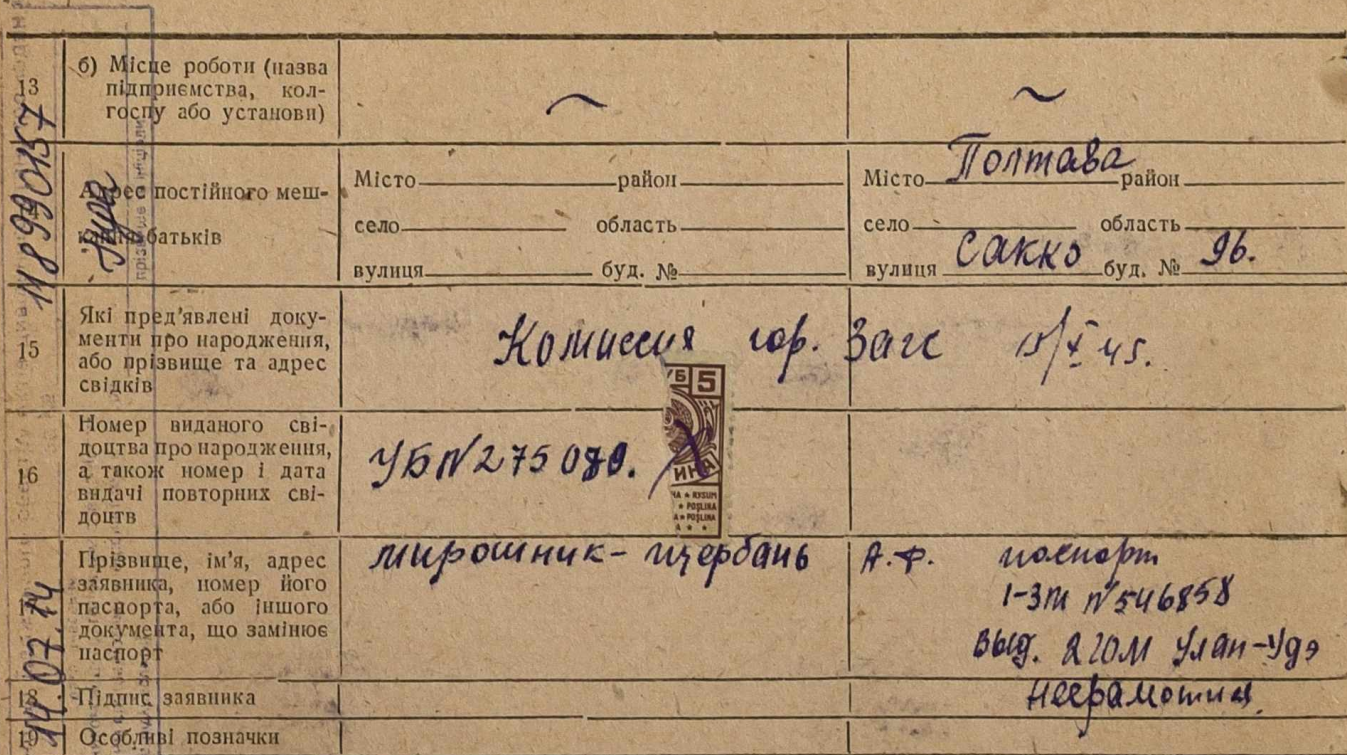 13 б) Місце роботи (назва
підприємства, кол-
госпу або установи) ~ ~
Адрес постійного меш-
кання батьків
Місто район
село область
вулиця буд. №
Місто Полтава район
село область
вулиця Сакко буд. № 96.
15 Які пред’явлені доку-
менти про народження,
або прізвище та адрес
свідків
Комиссия гор. Загс 15/X 45.
16 Номер виданого сві-
доцтва про народження,
а також номер і дата
видачі повторних сві-
доцтв
УБ № 275080.
УБ 5
ИНА
НА ★ RYSUM
★ POŞLINA
A ★ POŞLINA
A ★ ★
Прізвище, ім’я, адрес
заявника, номер його
паспорта, або іншого
документа, що замінює
паспорт
Мирошник - Щербань А.Ф. поспорт
1-ЗМ № 546858
выд. 2 ГОМ Улан-Удэ
18 Підпис заявника неграмотна
19 Особливі позначки
118990157
14.07.14
прізвище ініціали